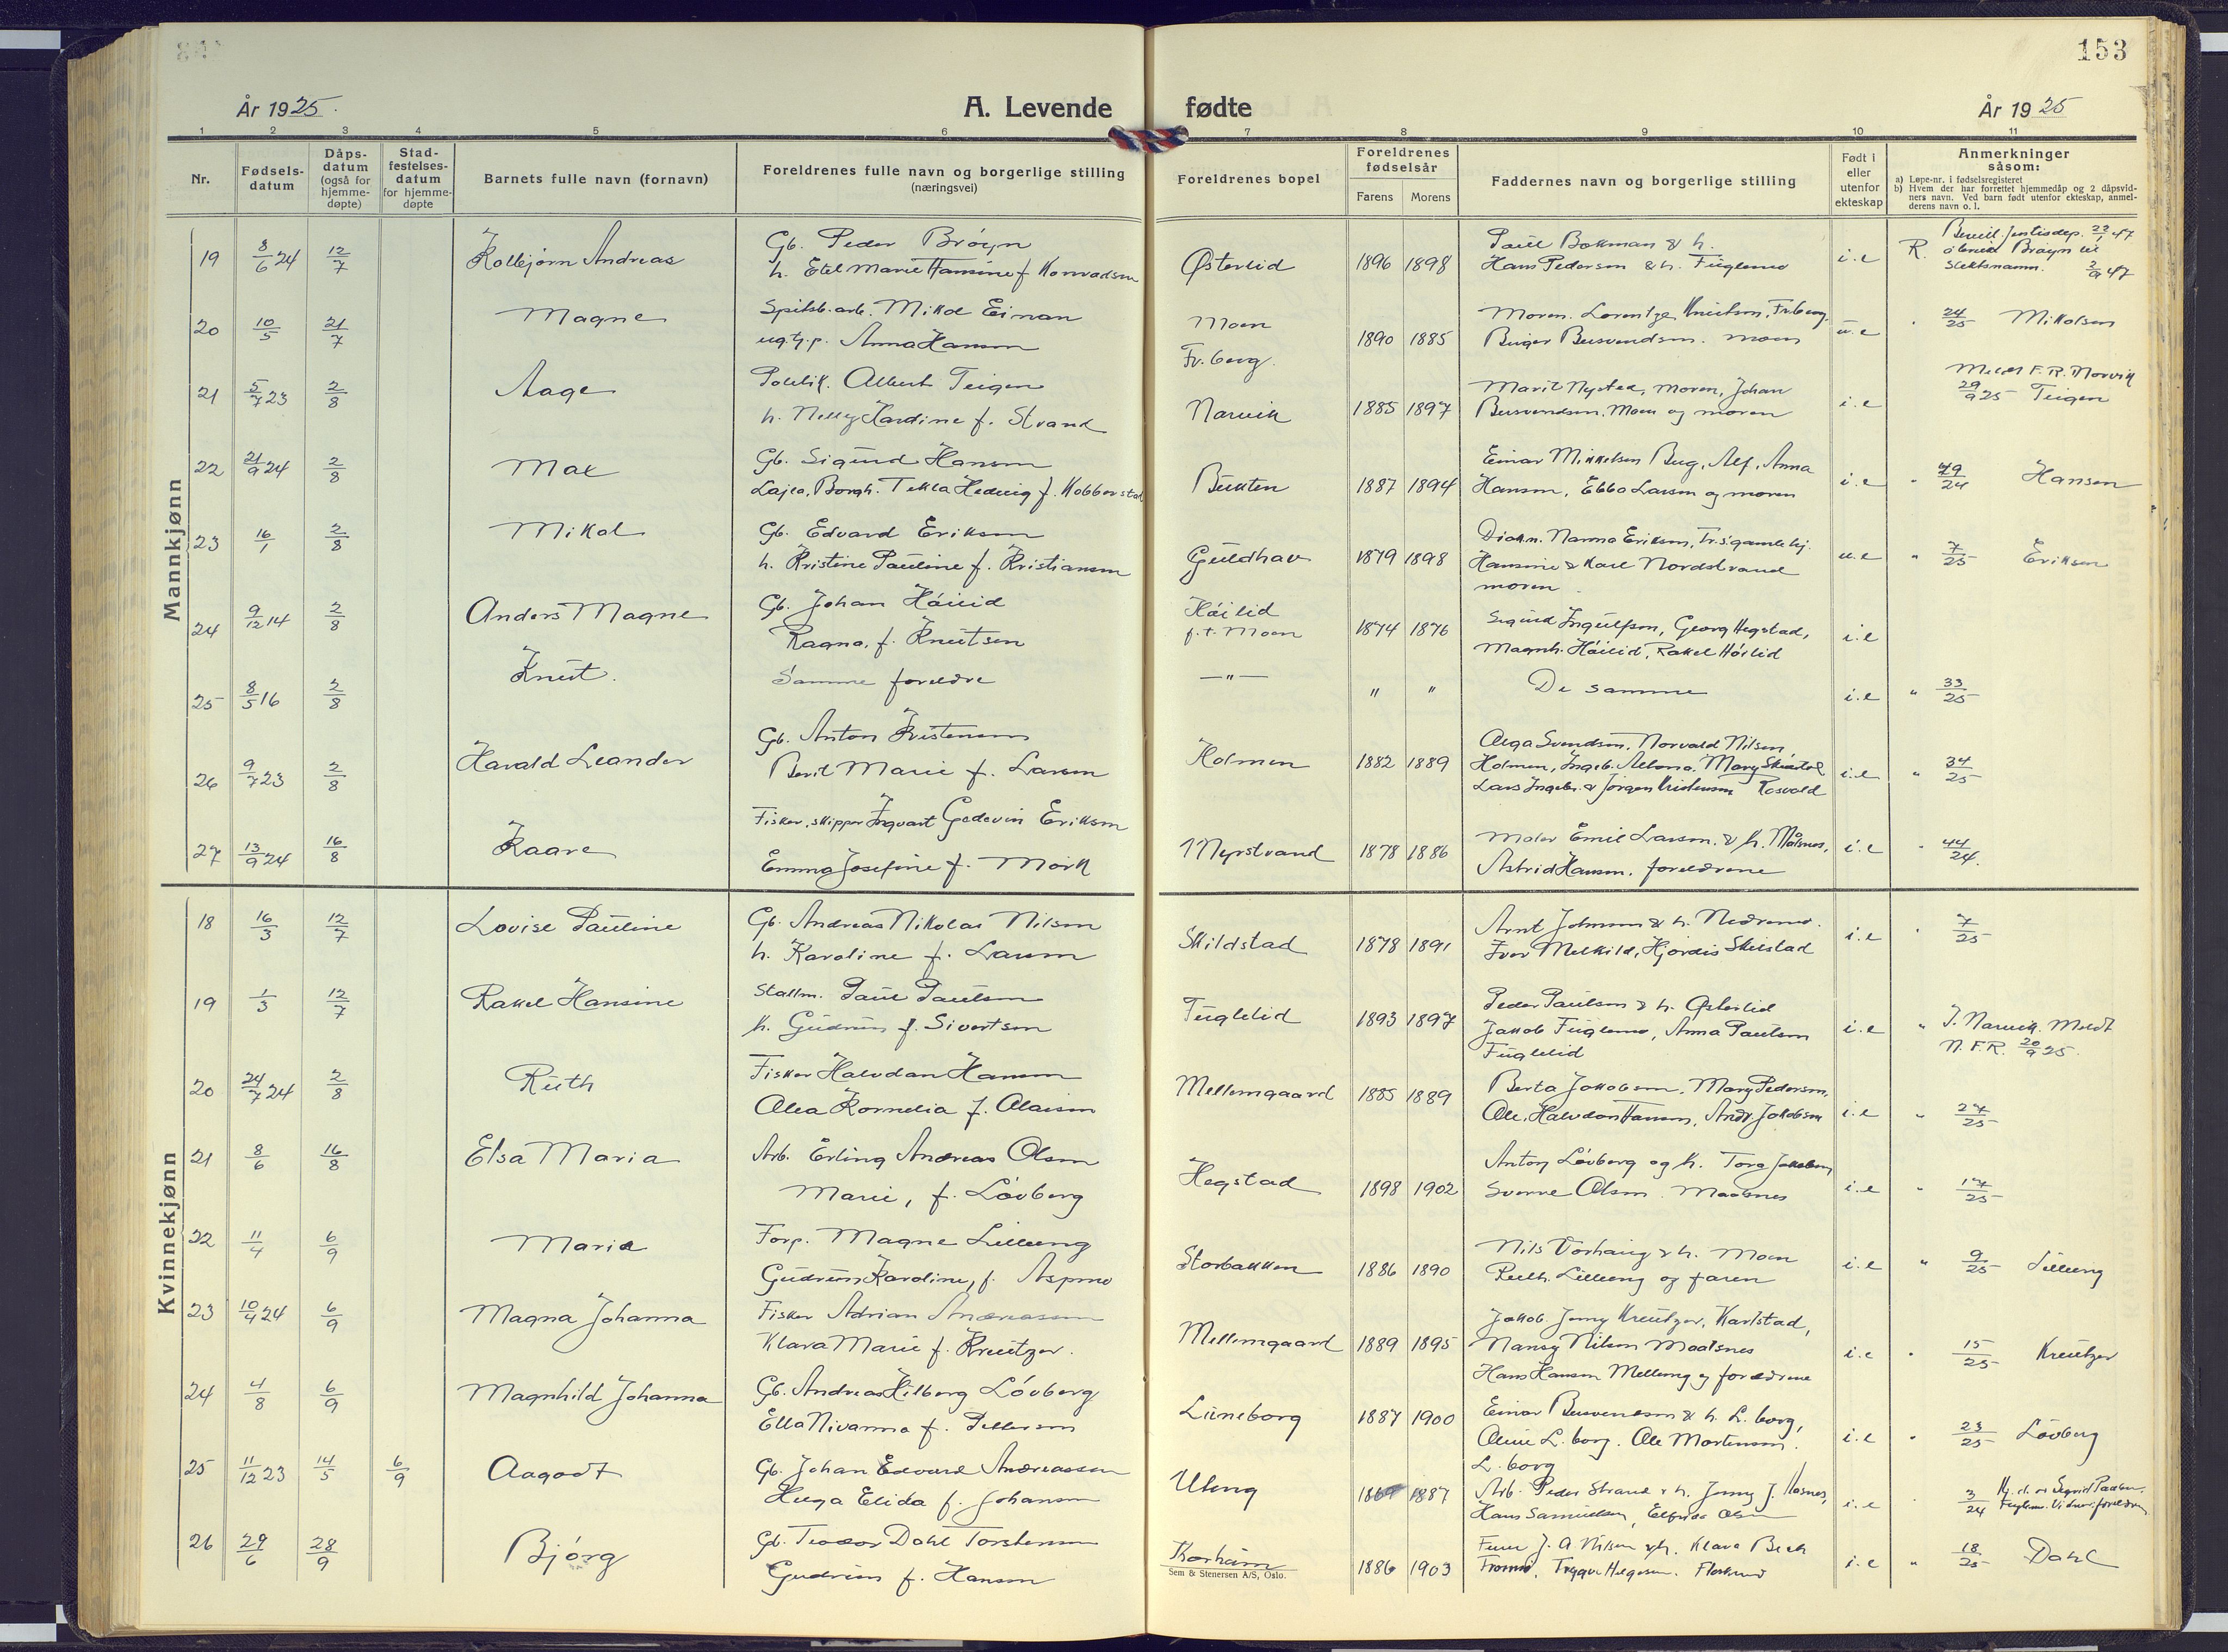 153
År 1925.
A. Levende fødte
År 1925
1 2 3 4 5 6 7 8 9 10 11
Nr.
Fødsels-
datum
Dåps-
datum
(også for
hjemme-
døpte)
Stad-
festelses-
datum
for hjemme-
døpte
Barnets fulle navn (fornavn)
Foreldrenes fulle navn og borgerlige stilling
(næringsvei)
Foreldrenes bopel
Foreldrenes
fødselsår
Farens Morens
Faddernes navn og borgerlige stilling
Født i
eller
utenfor
ekteskap
Anmerkninger
såsom:
a) Løpe-nr. i fødselsregisteret
b) Hvem der har forrettet hjemmedåp og 2 dåpsvid-
ners navn. Ved barn født utenfor ekteskap, anmel-
derens navn o. l.
Mannkjønn
19 8/6 24 12/7 Kolbjørn Andreas
Gb. Peder Brøyn
h. Etel Marie Hansine f. Konradsen
Østerlid 1896 1898
Paul Bokman & h.
Hans Pedersen & h. Fuglemo
i.e
R.
20 10/5 21/7 Magne
Spitsb. arb. Mikal Einan
ug. t.p. Anna Hansen
Moen
Fr.berg. 1890 1885
Moren. Lorentze Knutsen, Fr.berg.
Birger Busvendsen. Moen
u.e
" 24/25 Mikalsen
21 5/7 23 2/8 Aage
Politik. Albert Teigen
h. Nelly Hardine f. Strand
Narvik 1885 1897
Marit Nysted, Moren, Johan
Busvendsen, Moen og moren
i.e
Meldt F.R. Narvik
29/9 25 Teigen
22 21/9 24 2/8 Max
Gb. Sigurd Hansen
Lajla, Borgh. Tekla Hedvig f. Kobberstad
Bukten 1887 1894
Einar Mikkelsen Bug, Alf, Anna
Hansen, Ebba Larsen og moren
i.e
" 49/24 Hansen
23 16/1 2/8 Mikal
Gb. Edvard Eriksen
h. Kristine Pauline f. Kristiansen
Guldhav 1879 1898
Diakn. Nanna Eriksen, Tr.s gamlehj.
Hansine & Karl Nordstrand
moren.
u.e
" 7/25 Eriksen
24 9/12 14 2/8 Anders Magne
Gb. Johan Høilid
Ragna, f. Knutsen
Høilid
f.t. Moen 1874 1876
Sigurd Ingulfsen, Georg Hegstad,
Magnh. Høilid, Rakel Høilid
i.e
25 8/5 16 2/8 Knut.
Samme foreldre
—"— " "
De samme
i.e
" 33/25
26 9/7 23 2/8 Harald Leander
Gb. Anton Kristensen
Berit Marie f. Larsen
Holmen 1882 1889
Alga Svendsen, Norvald Nilsen,
Lars Ingebr. & Jørgen Kristensen Rosvold
i.e
" 34/25
27 13/9 24 16/8 Kaare
Fisker, skipper Ingvart Gedevin Eriksen
Emma Josefine f. Mørk
Nyrstrand 1878 1886
Maler Emil Larsen & h. Målsnes,
Astrid Hansen, foreldrene
i.e
" 44/24.
Kvinnekjønn
18 16/3 12/7 Lovise Pauline
Gb. Andreas Nikolai Nilsen
h. Karoline f. Larsen
Skildstad 1878 1891
Arnt Johnsen & h. Nedremo.
Iver Melkild, Hjørdis Skilstad
i.e
" 7/25
19 1/3 12/7 Rakel Hansine
Stallm. Paul Paulsen
h. Gudrun f. Sivertsen
Fuglelid 1893 1897
Peder Paulsen & h. Østerlid
Jakob Fuglemo, Anna Paulsen
Fuglelid
i.e
" I. Narvik. Meldt
N. F.R. 20/9 25.
20 24/7 24 2/8 Ruth
Fisker Halvdan Hansen
Alea Kornelia f. Olaisen
Mellemgaard 1885 1889
Berta Jakobsen, Mary Pedersen,
Ole, Halvdan Hansen, Andr. Jakobsen
i.e
" 27/25
21 8/6 16/8 Elsa Maria
Arb. Erling Andreas Olsen
Marie, f. Løvberg
Hegstad 1898 1902
Anton Løvberg og h. Tora Jakobsen
Sverre Olsen. Maalsnes
i.e
" 17/25
22 11/4 6/9 Maria
Forp. Magne Lilleeng
Gudrun Karoline, f. Aspmo
Storbakken 1886 1890
Nils Vorhaug & h. Moen
Ruth. Lilleeng og faren
i.e
" 9/25 Lilleeng
23 10/9 24 6/9 Magna Johanna
Fisker Adrian Andreassen
Klara Marie f. Kreutzer.
Mellemgaard 1889 1895
Jakob. Jenny Kreutzer, Karlstad,
Nansy Nilsen Maalsnes
Hans Hansen Melleng og foreldrene
i.e
" 15/25 Kreutzer
24 4/8 6/9 Magnhild Johanna
Gb. Andreas Hilberg Løvberg
Ella Nivanna f. Pettersen
Luneborg 1887 1900
Einar Busvendsen & h. L.borg,
Oluie L.borg. Ole Mortensen.
L.borg
i.e
" 23/25 Løvberg
25 11/12 23 14/5 6/9 Aagodt
Gb. Johan Edvard Andreassen
Helga Elida f. Johansen
Uleng 1887
Arb. Peder Strand & h. Jenny J. Aasnes,
Hans Samuelsen, Elfrida Olsen
i.e
" 3/24
26 29/6 28/9 Bjørg
Gb. Teodor Dahl Torstensen
Gudrun f. Hansen
Karhaim 1886 1903
J. A. Nilsen & h. Klara Bech
Tromsø, Trygve Helgesen.
i.e
" 18/25 Dahl
Sem & Stenersen A/S, Oslo.